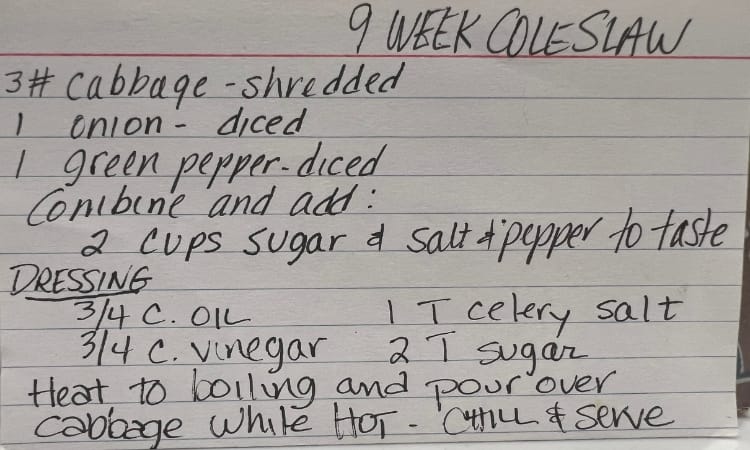 9 WEEK COLESLAW
3# cabbage - shredded
1 onion - diced
1 green pepper - diced
Combine and add:
2 cups sugar & salt & pepper to taste
DRESSING
3/4 C. OIL 1 T celery salt
3/4 C. vinegar 2 T sugar
Heat to boiling and pour over
cabbage while HOT - CHILL & serve